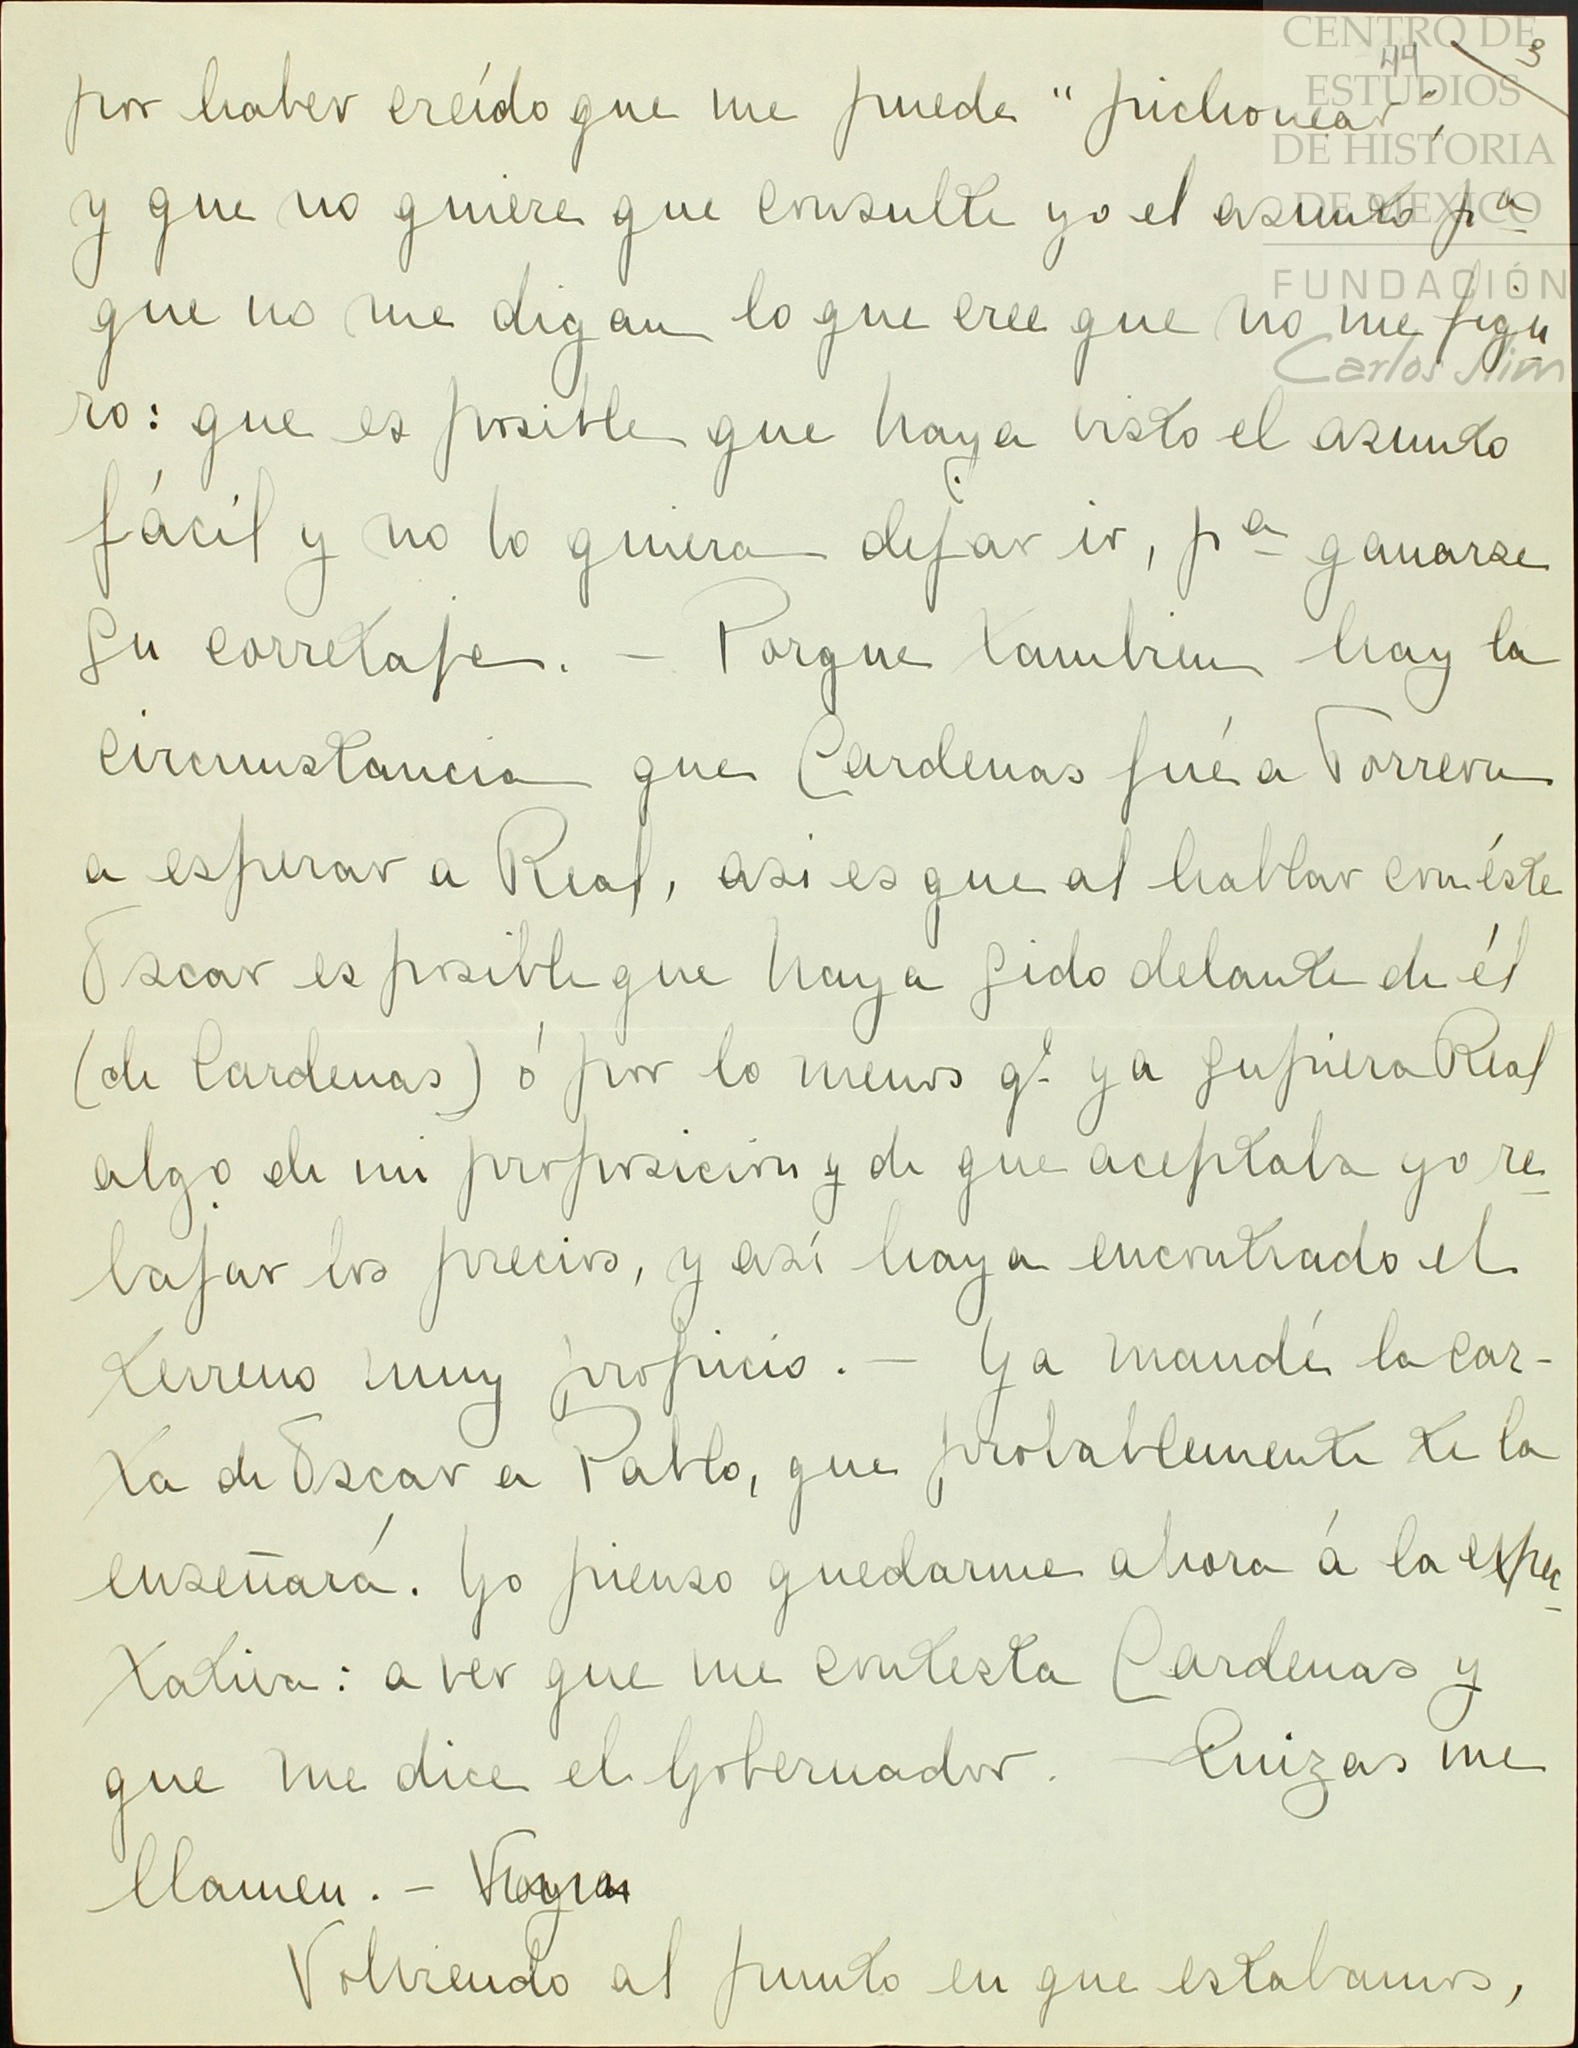 CENTRO DE
ESTUDIOS
DE HISTORIA
DE MEXICO
FUNDACIÓN
Carlos Slim
44 3
por haber creído que me puede "pichonear",
y que no quiere que consulte yo el asunto pª
que no me digan lo que cree que no me figu
ro: que es posible que haya visto el asunto
fácil y no lo quiera dejar ir, pª ganarse
su corretaje. – Porque tambien hay la
circunstancia que Cardenas fué a Torreon
a esperar a Real, asi es que al hablar con éste
Oscar es posible que haya sido delante de él
(de Cardenas) ó por lo menos qe ya supiera Real
algo de mi proposicion y de que aceptaba yo re-
bajar los precios, y así haya encontrado el
terreno muy propicio. – Ya mandé la car-
ta de Oscar a Pablo, que probablemente te la
enseñará. Yo pienso quedarme ahora á la expec-
tativa: a ver que me contesta Cardenas y
que me dice el Gobernador. – Quizas me
llamen. –
Volviendo al punto en que estabamos,